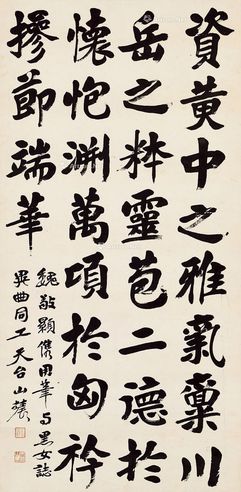 資黃中之雅氣稟川
岳之粹靈苞二德於
懷抱淵萬頃於匈衿
摻節端華
魏敬顯儁用筆与黑女誌
異曲同工天台山農